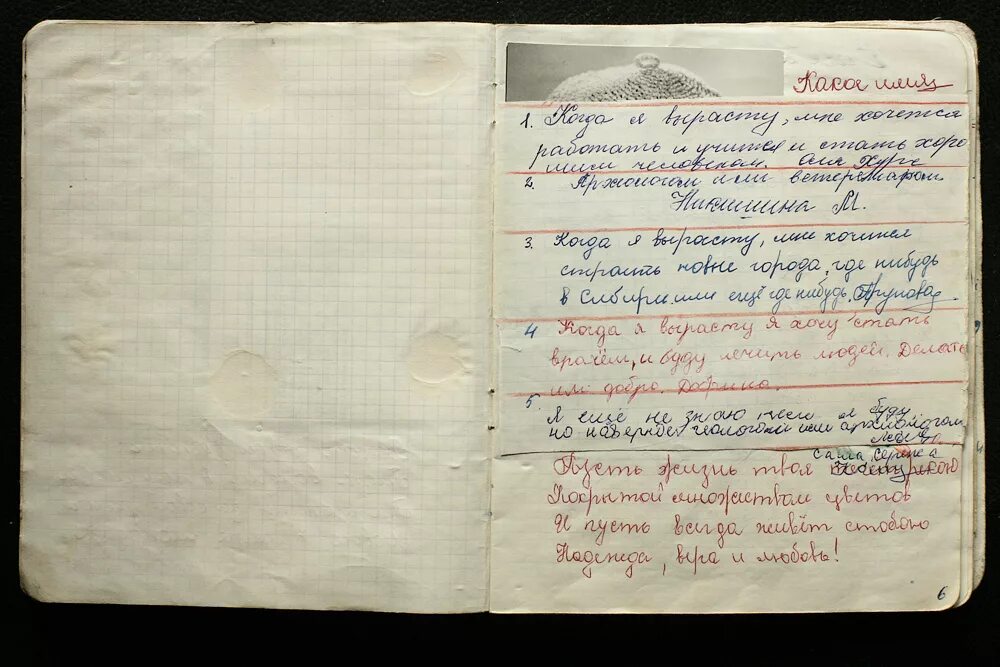 Какое имя
1. Когда я вырасту, мне хочется
работать и учится и стать хоро
шим человеком. Оля
2. Археологом или ветеринаром
Никишина М.
3. Когда я вырасту, мне хочится
строить новые города, где нибудь
в Сибири или ещё где нибудь.
4 Когда я вырасту я хочу стать
врачём, и буду лечить людей. Делать
им добро.
5. Я ещё не знаю кем я буду
но наверное геологом или археологом
Саша, Сережа
Пусть жизнь твоя
Покрытой множеством цветов
И пусть всегда живёт стобою
Надежда, вера и любовь!
6